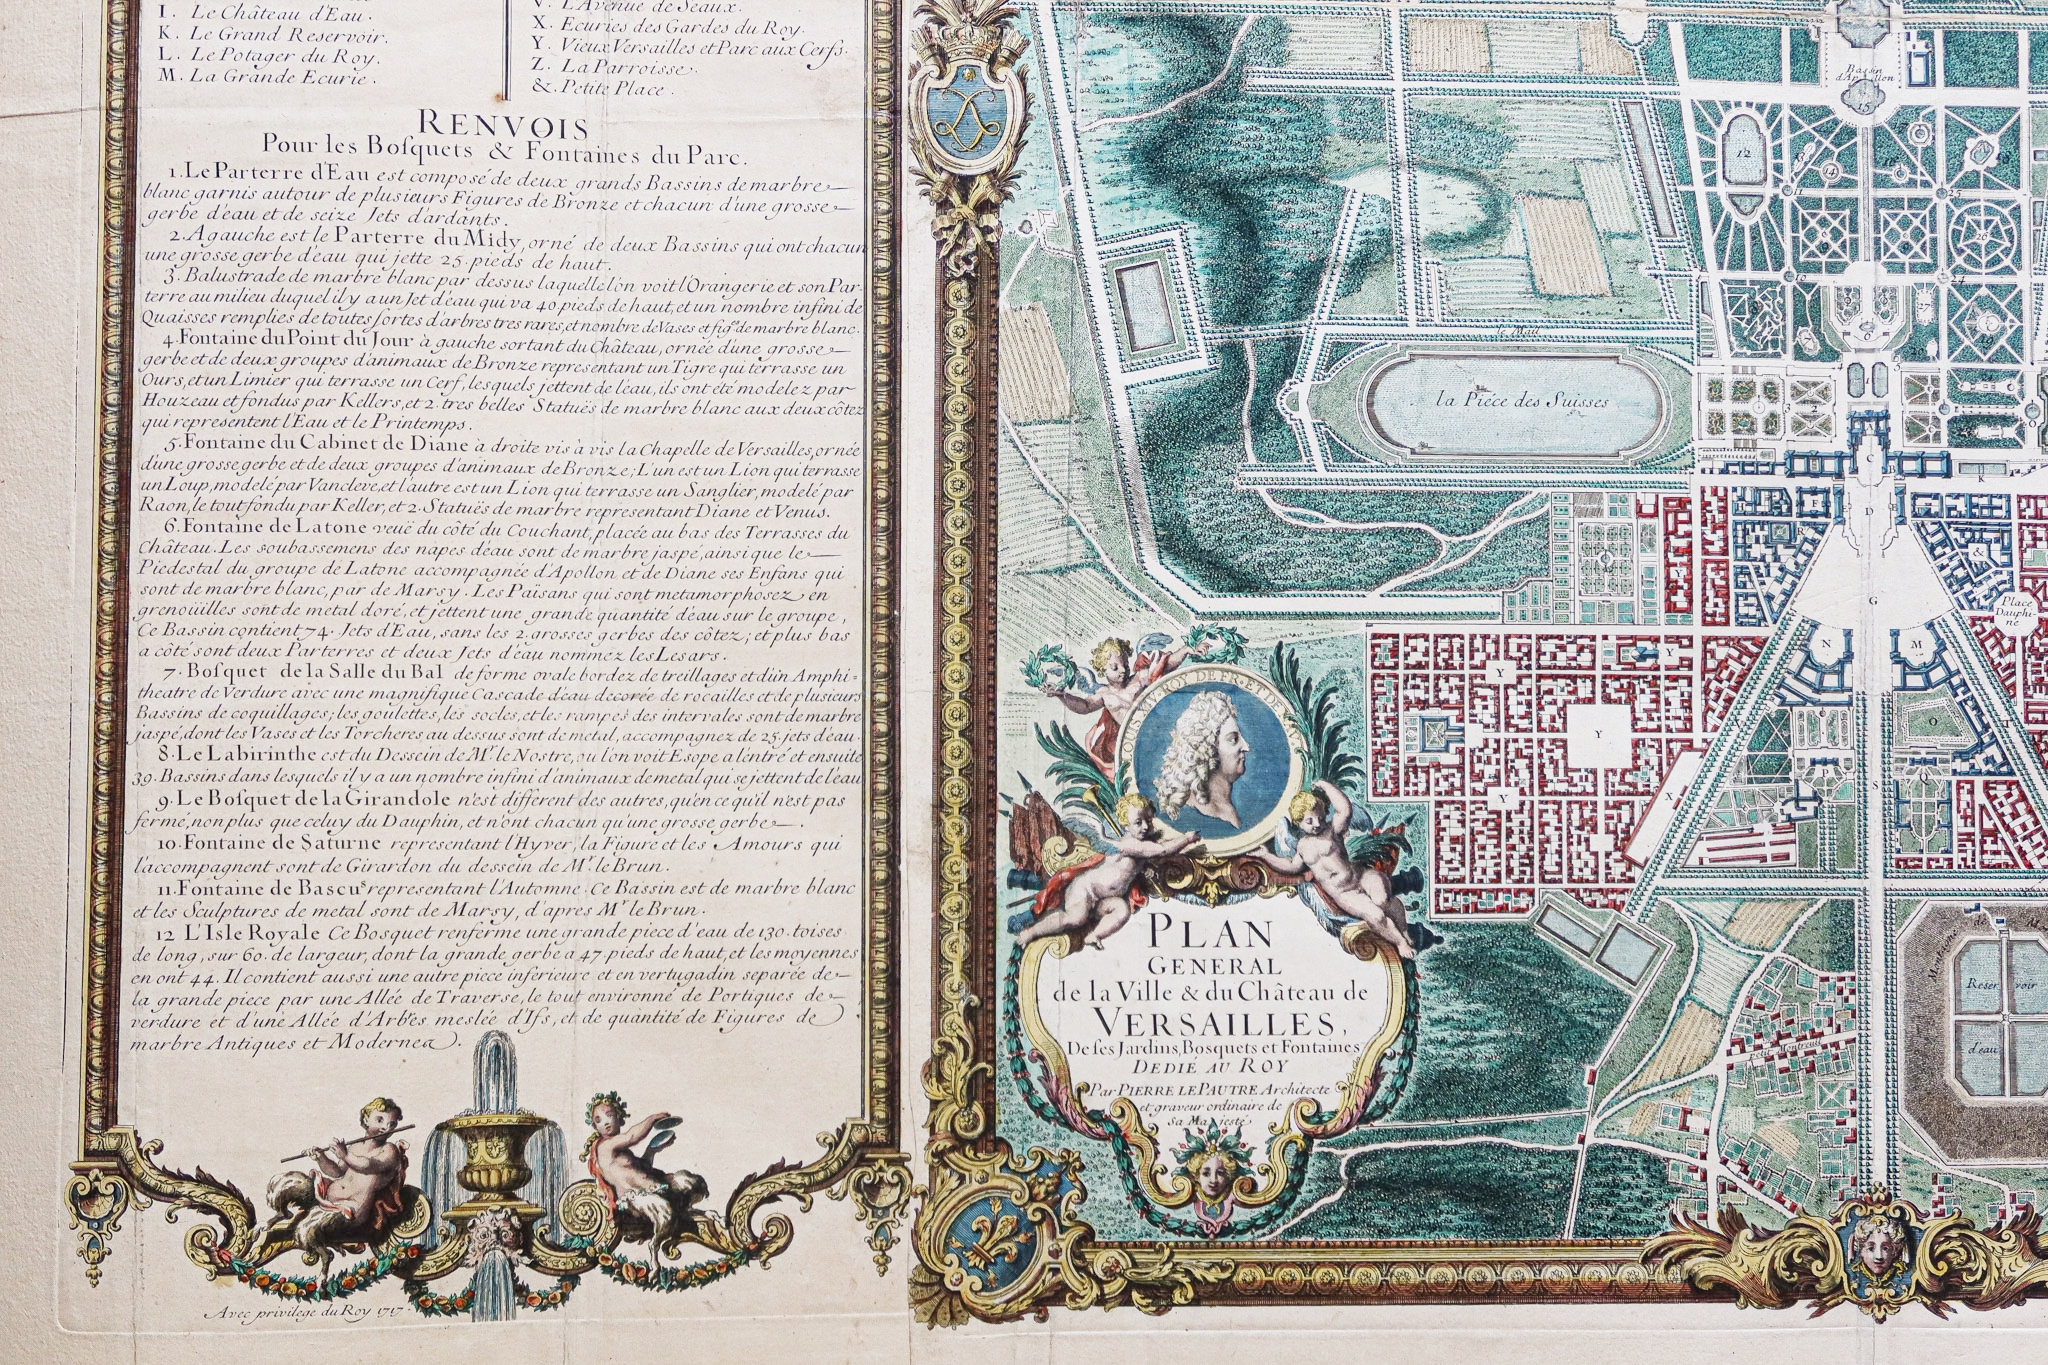 I. Le Château d'Eau.
K. Le Grand Reservoir.
L. Le Potager du Roy.
M. La Grande Ecurie.
V. L'Avenue de Seaux.
X. Ecuries des Gardes du Roy.
Y. Vieux Versailles et Parc aux Cerfs.
Z. La Parroisse.
&. Petite Place.
RENVOIS
Pour les Bosquets & Fontaines du Parc.
1. Le Parterre d'Eau est composé de deux grands Bassins de marbre
blanc garnis autour de plusieurs Figures de Bronze et chacun d'une grosse
gerbe d'eau et de seize Jets d'ardants.
2. A gauche est le Parterre du Midy, orné de deux Bassins qui ont chacun
une grosse gerbe d'eau qui jette 25. pieds de haut.
3. Balustrade de marbre blanc par dessus laquelle l'on voit l'Orangerie et son Par-
terre au milieu duquel il y a un Jet d'eau qui va 40. pieds de haut, et un nombre infini de
Quaisses remplies de toutes sortes d'arbres tres rares, et nombre de Vases et fig.s de marbre blanc.
4. Fontaine du Point du Jour à gauche sortant du Château, ornée d'une grosse
gerbe et de deux groupes d'animaux de Bronze representant un Tigre qui terrasse un
Ours, et un Limier qui terrasse un Cerf, lesquels jettent de l'eau, ils ont été modelez par
Houzeau et fondus par Kellers, et 2. tres belles Statuës de marbre blanc aux deux côtez
qui representent l'Eau et le Printemps.
5. Fontaine du Cabinet de Diane à droite vis à vis la Chapelle de Versailles, ornée
d'une grosse gerbe et de deux groupes d'animaux de Bronze; L'un est un Lion qui terrasse
un Loup, modelé par Vancleve, et l'autre est un Lion qui terrasse un Sanglier, modelé par
Raon, le tout fondu par Keller, et 2. Statuës de marbre representant Diane et Venus.
6. Fontaine de Latone veuë du côté du Couchant, placée au bas des Terrasses du
Château. Les soubassemens des napes d'eau sont de marbre jaspé, ainsi que le
Piedestal du groupe de Latone accompagnée d'Apollon et de Diane ses Enfans qui
sont de marbre blanc, par de Marsy. Les Païsans qui sont metamorphosez en
grenoüilles sont de metal doré, et jettent une grande quantité d'eau sur le groupe,
Ce Bassin contient 74. Jets d'Eau, sans les 2. grosses gerbes des côtez; et plus bas
a côté sont deux Parterres et deux Jets d'eau nommez les Lesars.
7. Bosquet de la Salle du Bal de forme ovale bordez de treillages et d'un Amphi-
theatre de Verdure avec une magnifique Cascade d'eau decorée de rocailles et de plusieurs
Bassins de coquillages; les goulettes, les socles, et les rampes des intervales sont de marbre
jaspé, dont les Vases et les Torcheres au dessus sont de metal, accompagnez de 25. jets d'eau.
8. Le Labirinthe est du Dessein de Mr. le Nostre, ou l'on voit Esope a l'entré et ensuite
39. Bassins dans lesquels il y a un nombre infini d'animaux de metal qui se jettent de l'eau
9. Le Bosquet de la Girandole n'est different des autres, qu'en ce qu'il n'est pas
fermé, non plus que celuy du Dauphin, et n'ont chacun qu'une grosse gerbe.
10. Fontaine de Saturne representant l'Hyver, la Figure et les Amours qui
l'accompagnent sont de Girardon du dessein de Mr. le Brun.
11. Fontaine de Bascus representant l'Automne. Ce Bassin est de marbre blanc
et les Sculptures de metal sont de Marsy, d'apres Mr. le Brun.
12 L'Isle Royale Ce Bosquet renferme une grande piece d'eau de 130. toises
de long, sur 60. de largeur, dont la grande gerbe a 47. pieds de haut, et les moyennes
en ont 44. Il contient aussi une autre piece inferieure et en vertugadin separée de
la grande piece par une Allée de Traverse, le tout environné de Portiques de
verdure et d'une Allée d'Arbres meslée d'Ifs, et de quantité de Figures de
marbre Antiques et Modernes.
Avec privilege du Roy 1717.
Bassin d'Apollon
15
12
14
11
25
26
10
le Mail
la Piece des Suisses
6
4
1
5
3
2
A
C
B
K
F
E
D
&
G
Place
Dauphi-
ne
N
M
Y
Y
Y
Y
X
O
T
P
Q
S
LOUIS XV. ROY DE FR. ET DE NAV.
PLAN
GENERAL
de la Ville & du Château de
VERSAILLES,
De ses Jardins, Bosquets et Fontaines
DEDIÉ AU ROY
Par PIERRE LE PAUTRE Architecte
et graveur ordinaire de
Sa Majesté
Montagne de M
Reservoir
d'eau
petit Montreuil